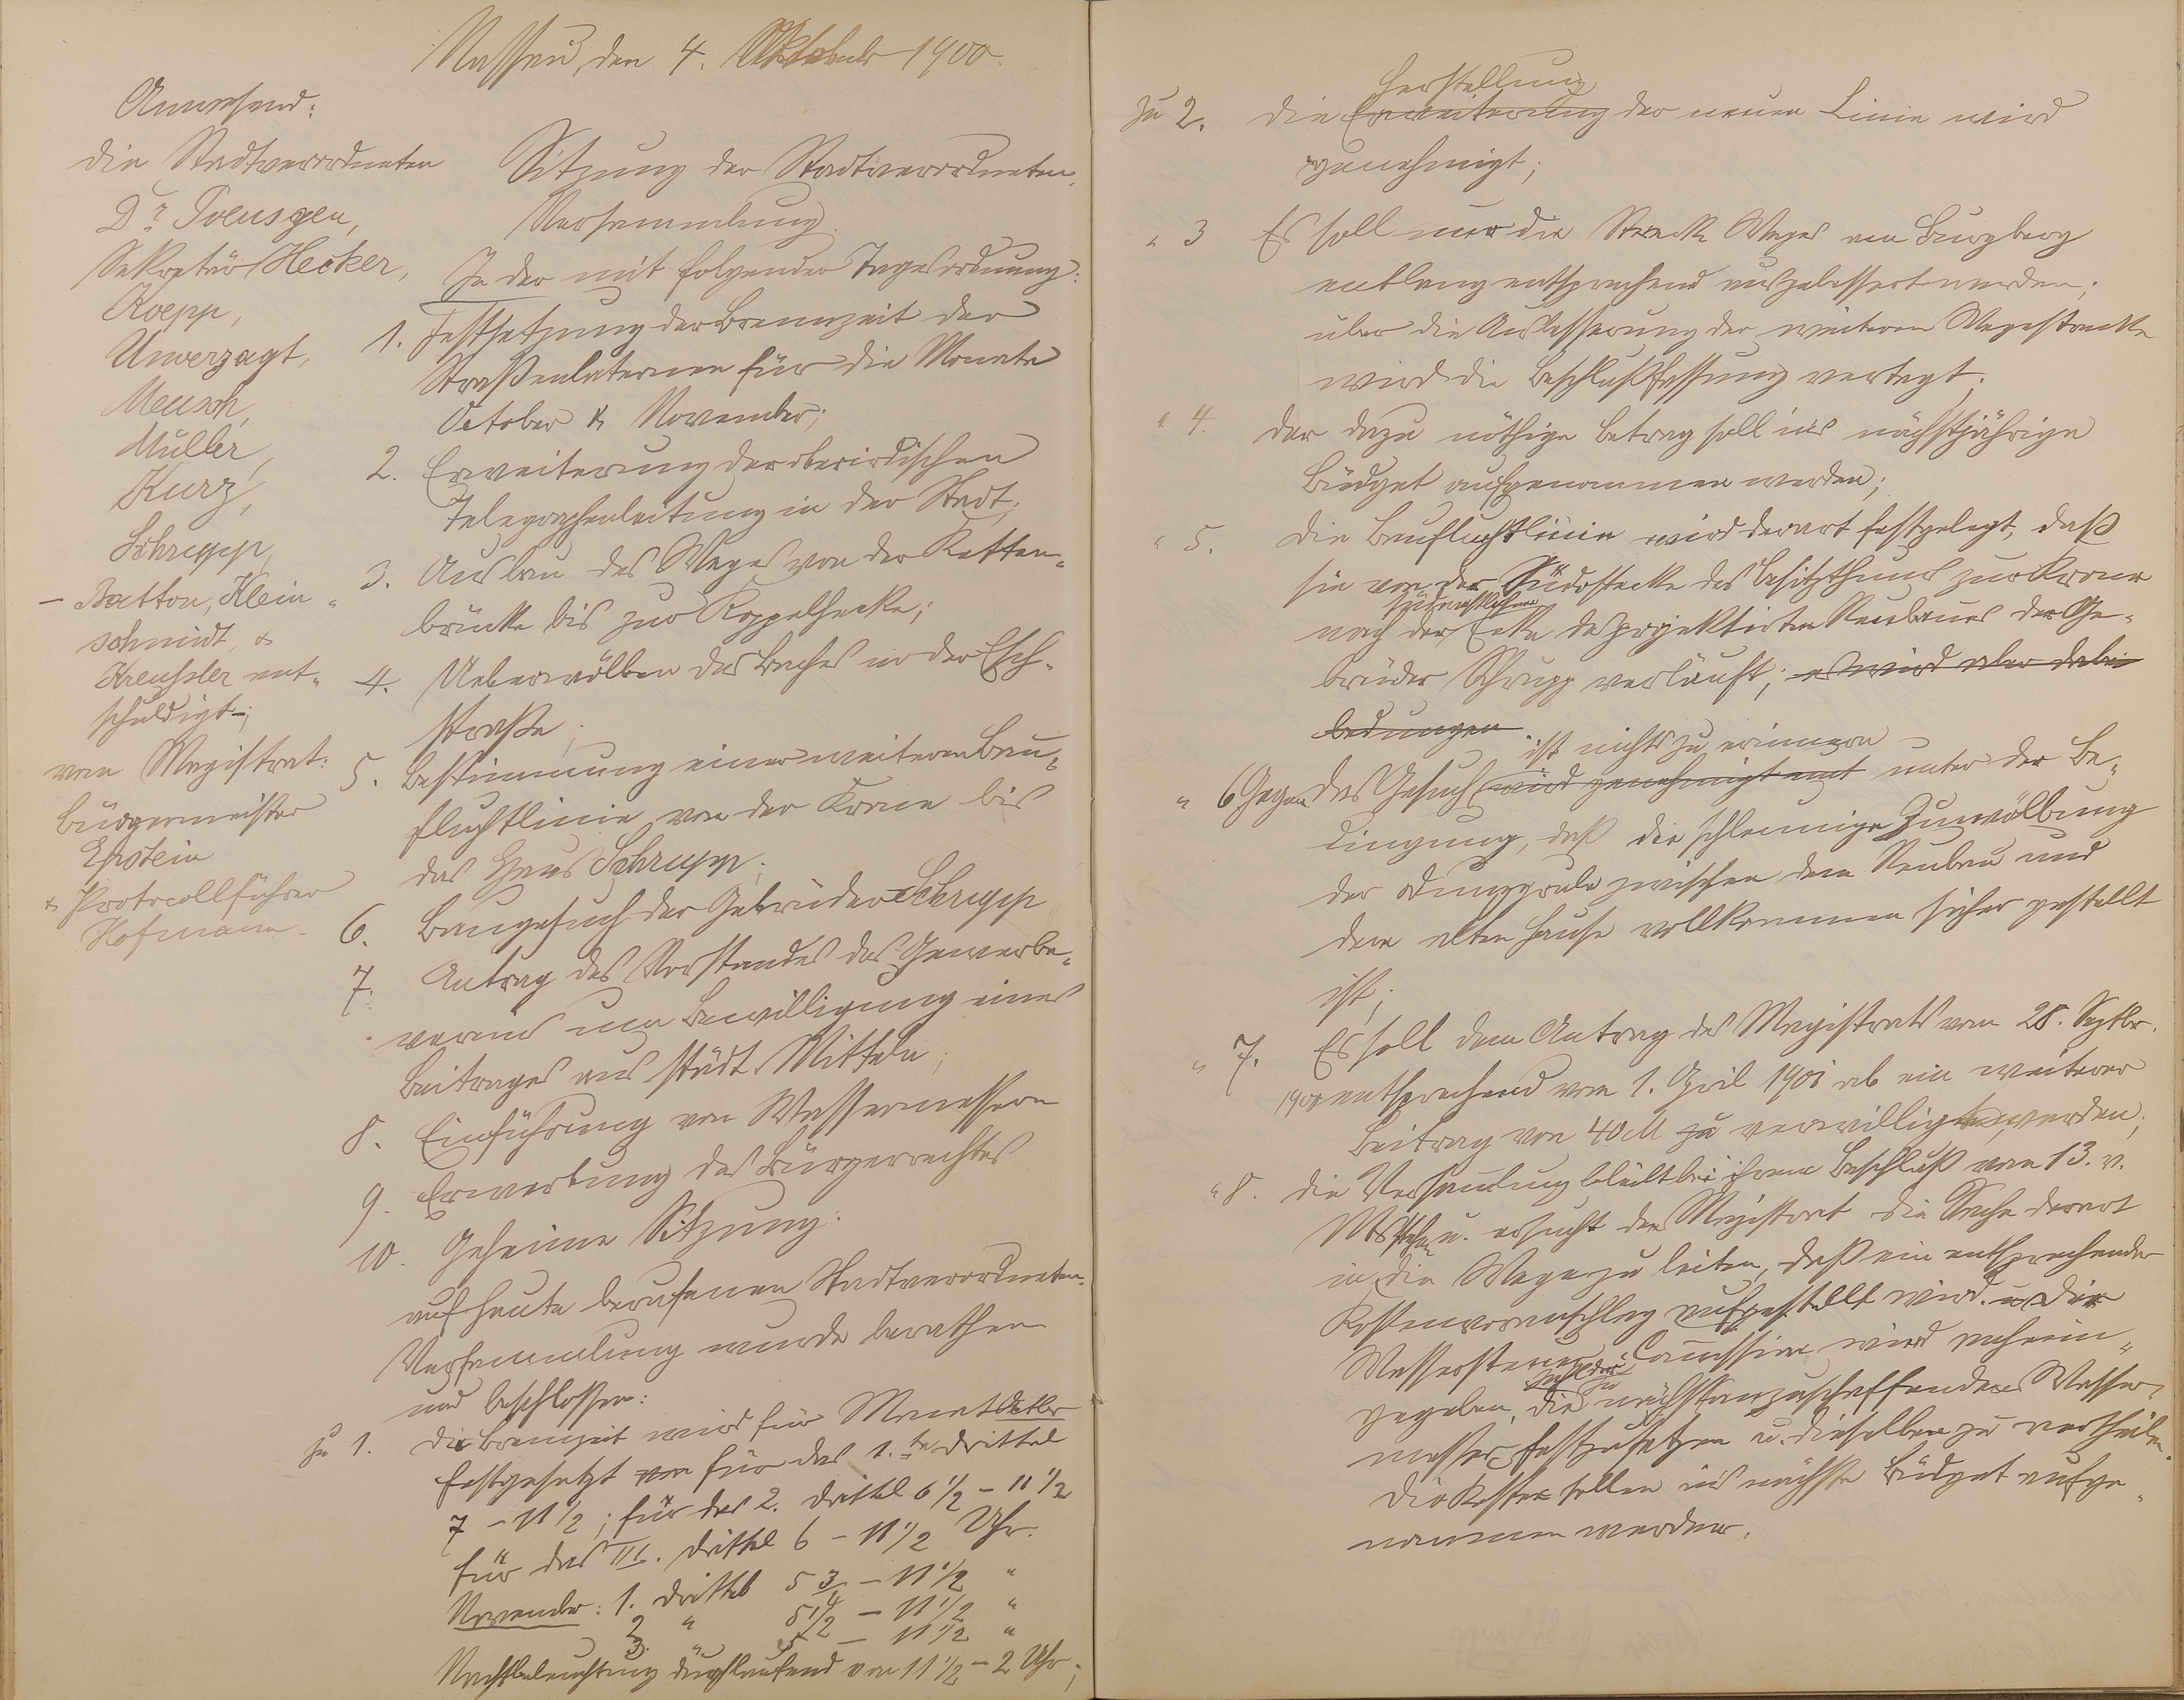 Nassau, den 4. Oktober 1900.
Anwesend:
die Stadtverordneten
Dr Poensgen,
Sekretär Hecker,
Koepp,
Unverzagt,
Meusch,
Müller,
Kurz,
Schrupp,
– Batton, Klein-
schmidt, &
Kreussler ent-
schuldigt –;
vom Magistrat:
Bürgermeister
Epstein
& Protocollführer
Hofmann.
Sitzung der Stadtverordneten-
Versammlung.
In der mit folgender Tagesordnung:
1. Festsetzung der Brennzeit der
Straßenlaternen für die Monate
October & November;
2. Erweiterung der oberirdischen
Telegraphenleitung in der Stadt;
3. Ausbau des Weges von der Ketten-
brücke bis zur Koppelhecke;
4. Ueberwölben des Baches in der Esch-
straße;
5. Bestimmung einer weiteren Bau-
fluchtlinie von der Krone bis
das Haus Schrupp;
6. Baugesuch der Gebrüder Schrupp
7. Antrag des Vorstandes des Gewerbe-
vereins um Bewilligung eines
Beitrages aus städt. Mitteln;
8. Einführung von Wassermessern
9. Erwerbung des Bürgerrechtes
10. Geheime Sitzung.
auf heute berufenen Stadtverordneten-
Versammlung wurde berathen
und beschlossen:
zu 1. Die Brennzeit wird für Monat Octbr
festgesetzt von für das 1.te Drittel
7 – 11 1/2; für das 2. Drittel 6 1/2 – 11 1/2
für das III. Drittel 6 – 11 1/2 Uhr.
November: 1. Drittel 5 3/4 – 11 1/2 "
2 " 5 1/2 – 11 1/2 "
3. " 5 – 11 1/2 "
Nachtbeleuchtung durchlaufend von 11 1/2 – 2 Uhr;
zu 2. Die Erweiterung Herstellung der neuen Linie wird
genehmigt;
" 3 Es soll nur die Strecke Weges am Burgberg
entlang entsprechend ausgebessert werden;
über die Ausbesserung der weiteren Wegestrecke
wird die Beschlußfassung vertagt.
" 4. Der dazu nöthige Betrag soll in's nächstjährige
Büdget aufgenommen werden;
" 5. Die Baufluchtlinie wird derart festgelegt, daß
sie von der Südostecke des Besitzthums zur Krone
nach der südwestlichen Ecke des projektirten Neubaues der Ge-
brüder Schrupp verläuft; es wird aber dabei
bedungen.
" 6 Gegen das Gesuch wird genehmigt mit ist nichts zu erinnern unter der Be-
dingung, daß die schleunige Zuwölbung
der Dunggrube zwischen dem Neubau und
dem alten Hause vollkommen sicher gestellt
ist;
" 7. Es soll dem Antrag des Magistrats vom 28. Septbr.
1900 entsprechend vom 1. April 1901 ab ein weiterer
Beitrag von 40 M zu verwilligt werden;
" 8. Die Versammlung bleibt bei ihrem Beschluß vom 13. v.
Mts stehen u. ersucht den Magistrat die Sache derart
in die Wege zu leiten, daß ein entsprechender
Kostenvoranschlag aufgestellt wird. u Der
Wassersteuer-Commission wird anheim-
gegeben, die Zahl der zu nächst anzuschaffenden Wasser-
messer festzusetzen u. dieselben zu vertheilen.
Die Kosten sollen in's nächste Büdget aufge-
nommen werden.